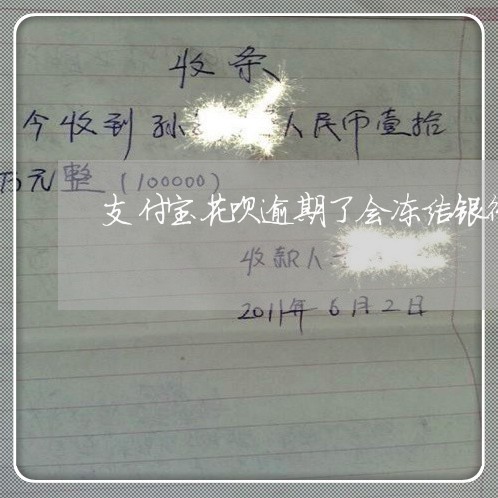 收条
今收到孙 人民币壹拾
万元整（100000）
支付宝花呗逾期了会冻结银
收款人
2011年6月2日